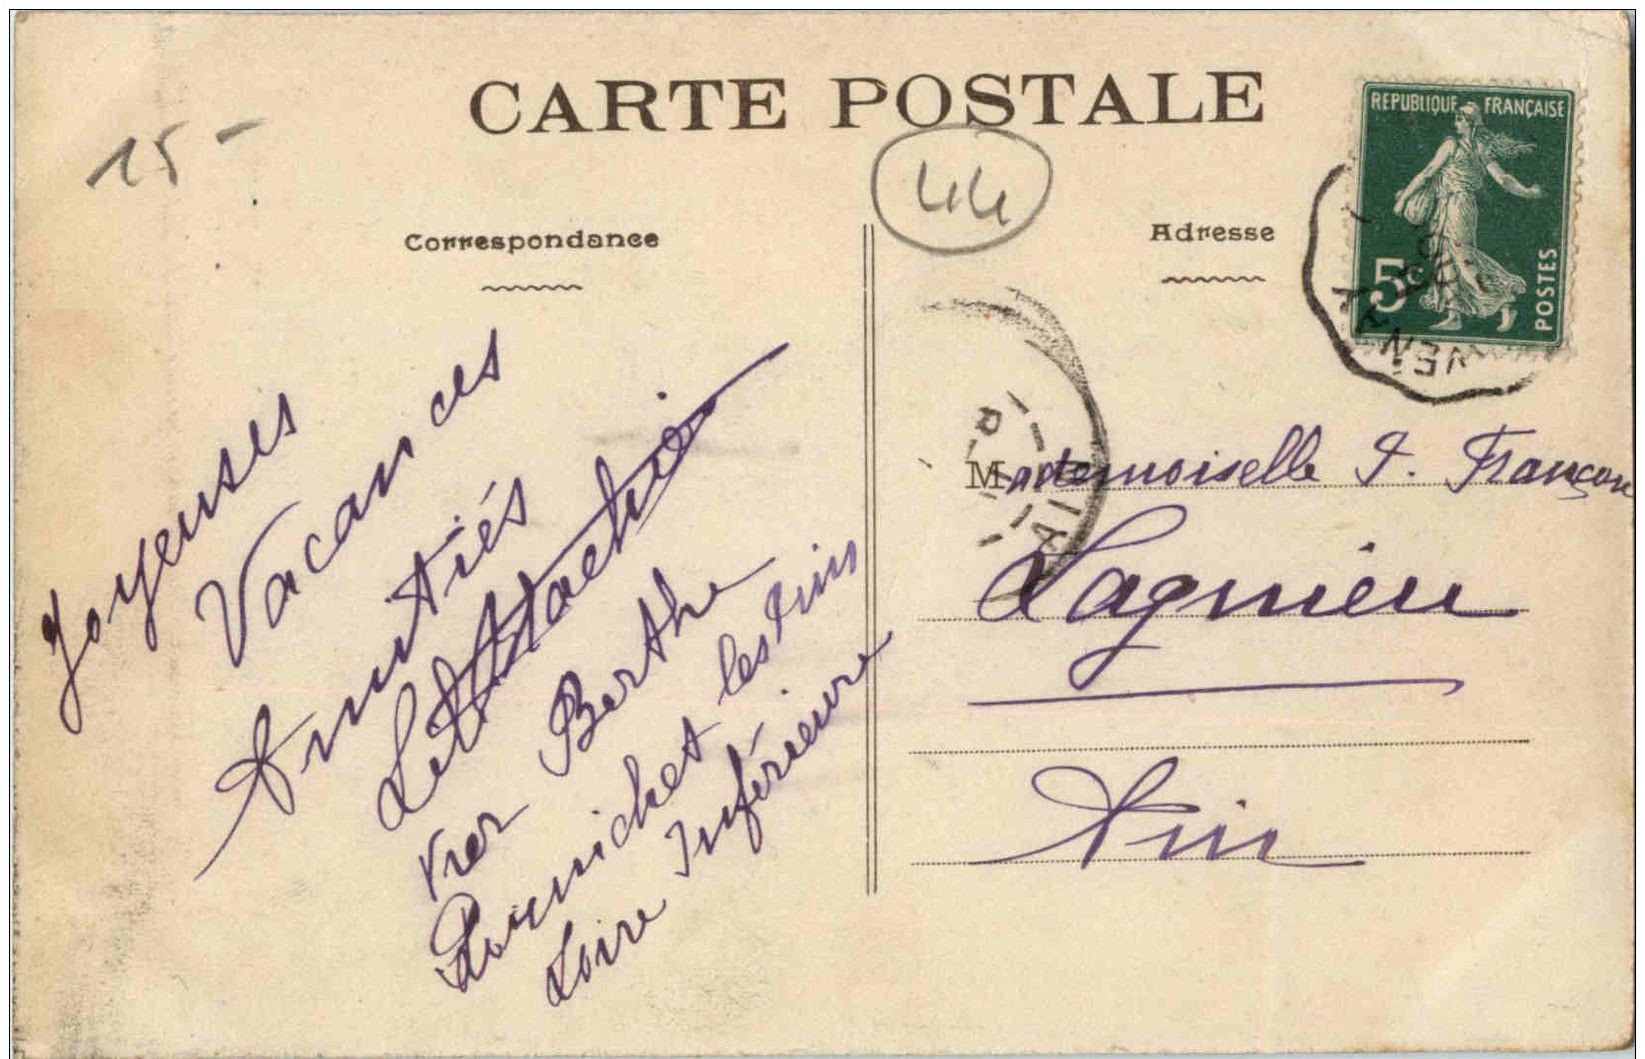 CARTE POSTALE
15 -
44
Correspondance
Adresse
REPUBLIQUE FRANÇAISE
5c
POSTES
Joyeuses
Vacances
Amitiés
Berthe
Pornichet les Pins
Loire Inférieure
Mademoiselle F. Françon
Lagnieu
Ain
AIN